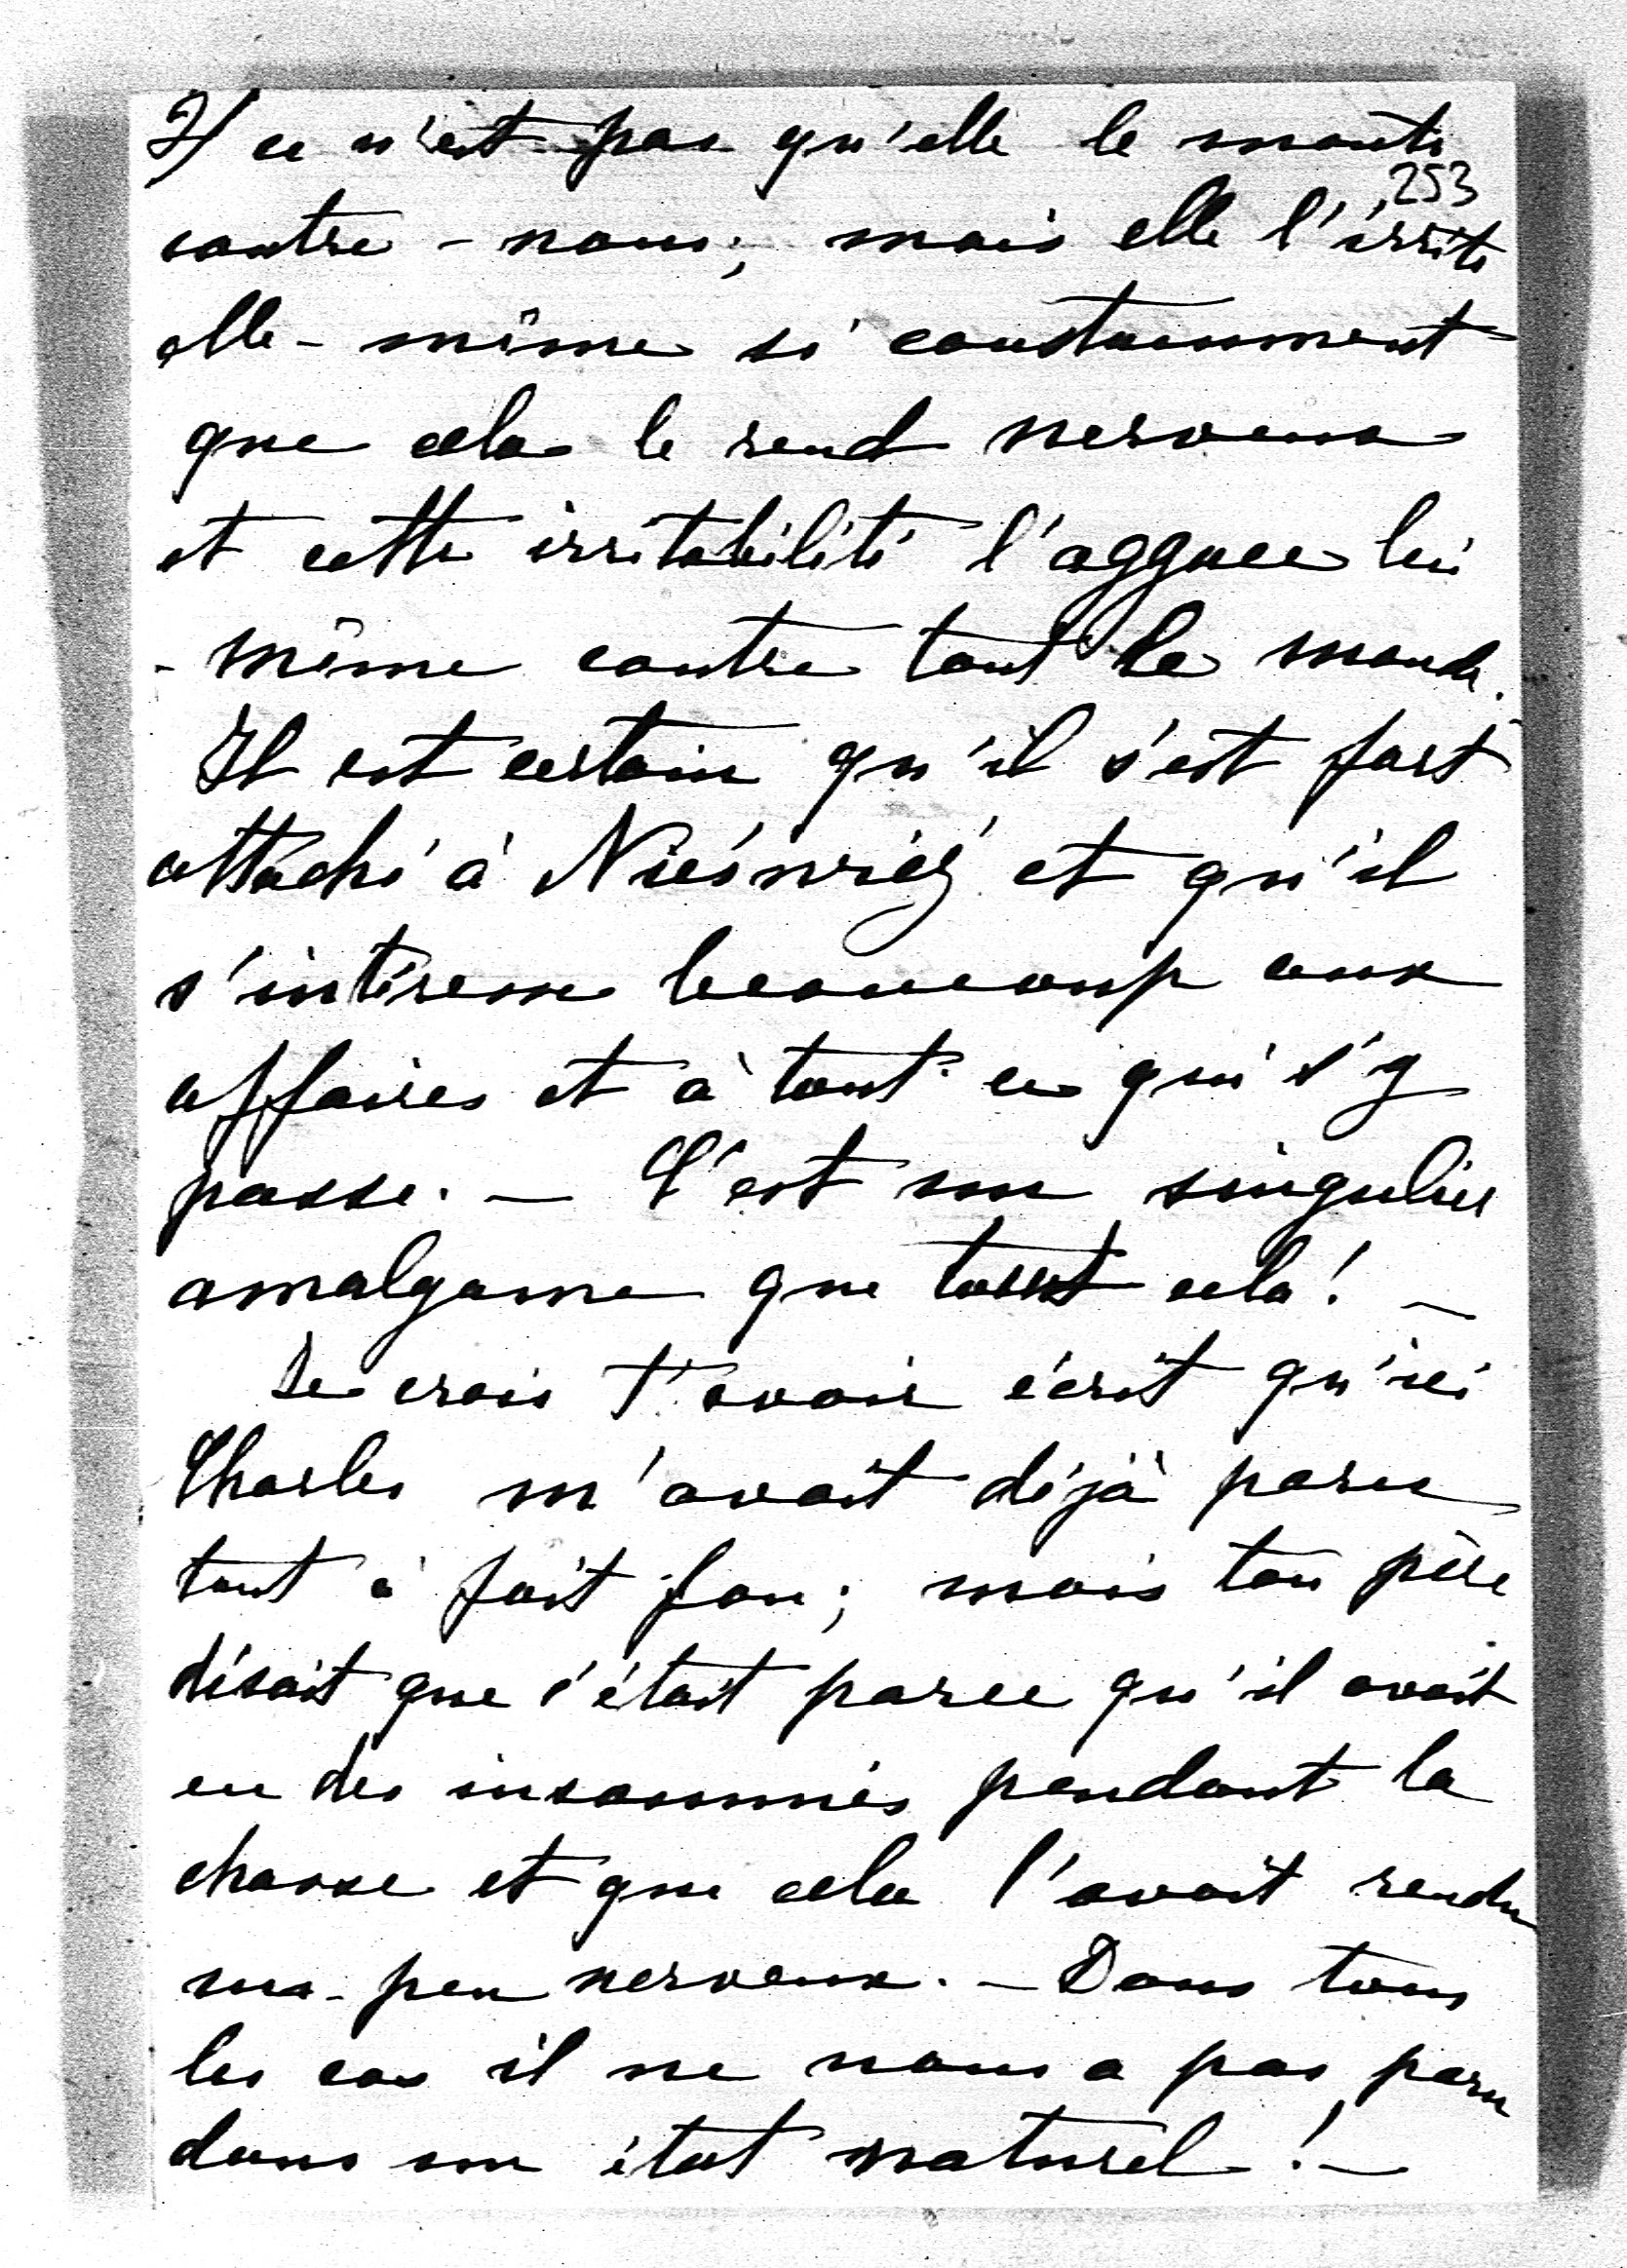 2/ ce n'est pas qu'elle le monte
253
contre-nous; mais elle l'irrite
elle-même si constamment
que cela le rend nerveux
et cette irritabilité l'aggace lui
-même contre tout le monde.
Il est certain qu'il s'est fort
attaché à Nieśwież et qu'il
s'intéresse beaucoup aux
affaires et à tout ce qui s'y
passe. — C'est un singulier
amalgame que tout cela! —
Je crois t'avoir écrit qu'ici
Charles m'avait déjà paru
tout à fait fou; mais ton père
disait que c'était parce qu'il avait
eu des insomnies pendant la
chasse et que cela l'avait rendu
un-peu nerveux. — Dans tous
les cas il ne nous a pas paru
dans son état naturel! —